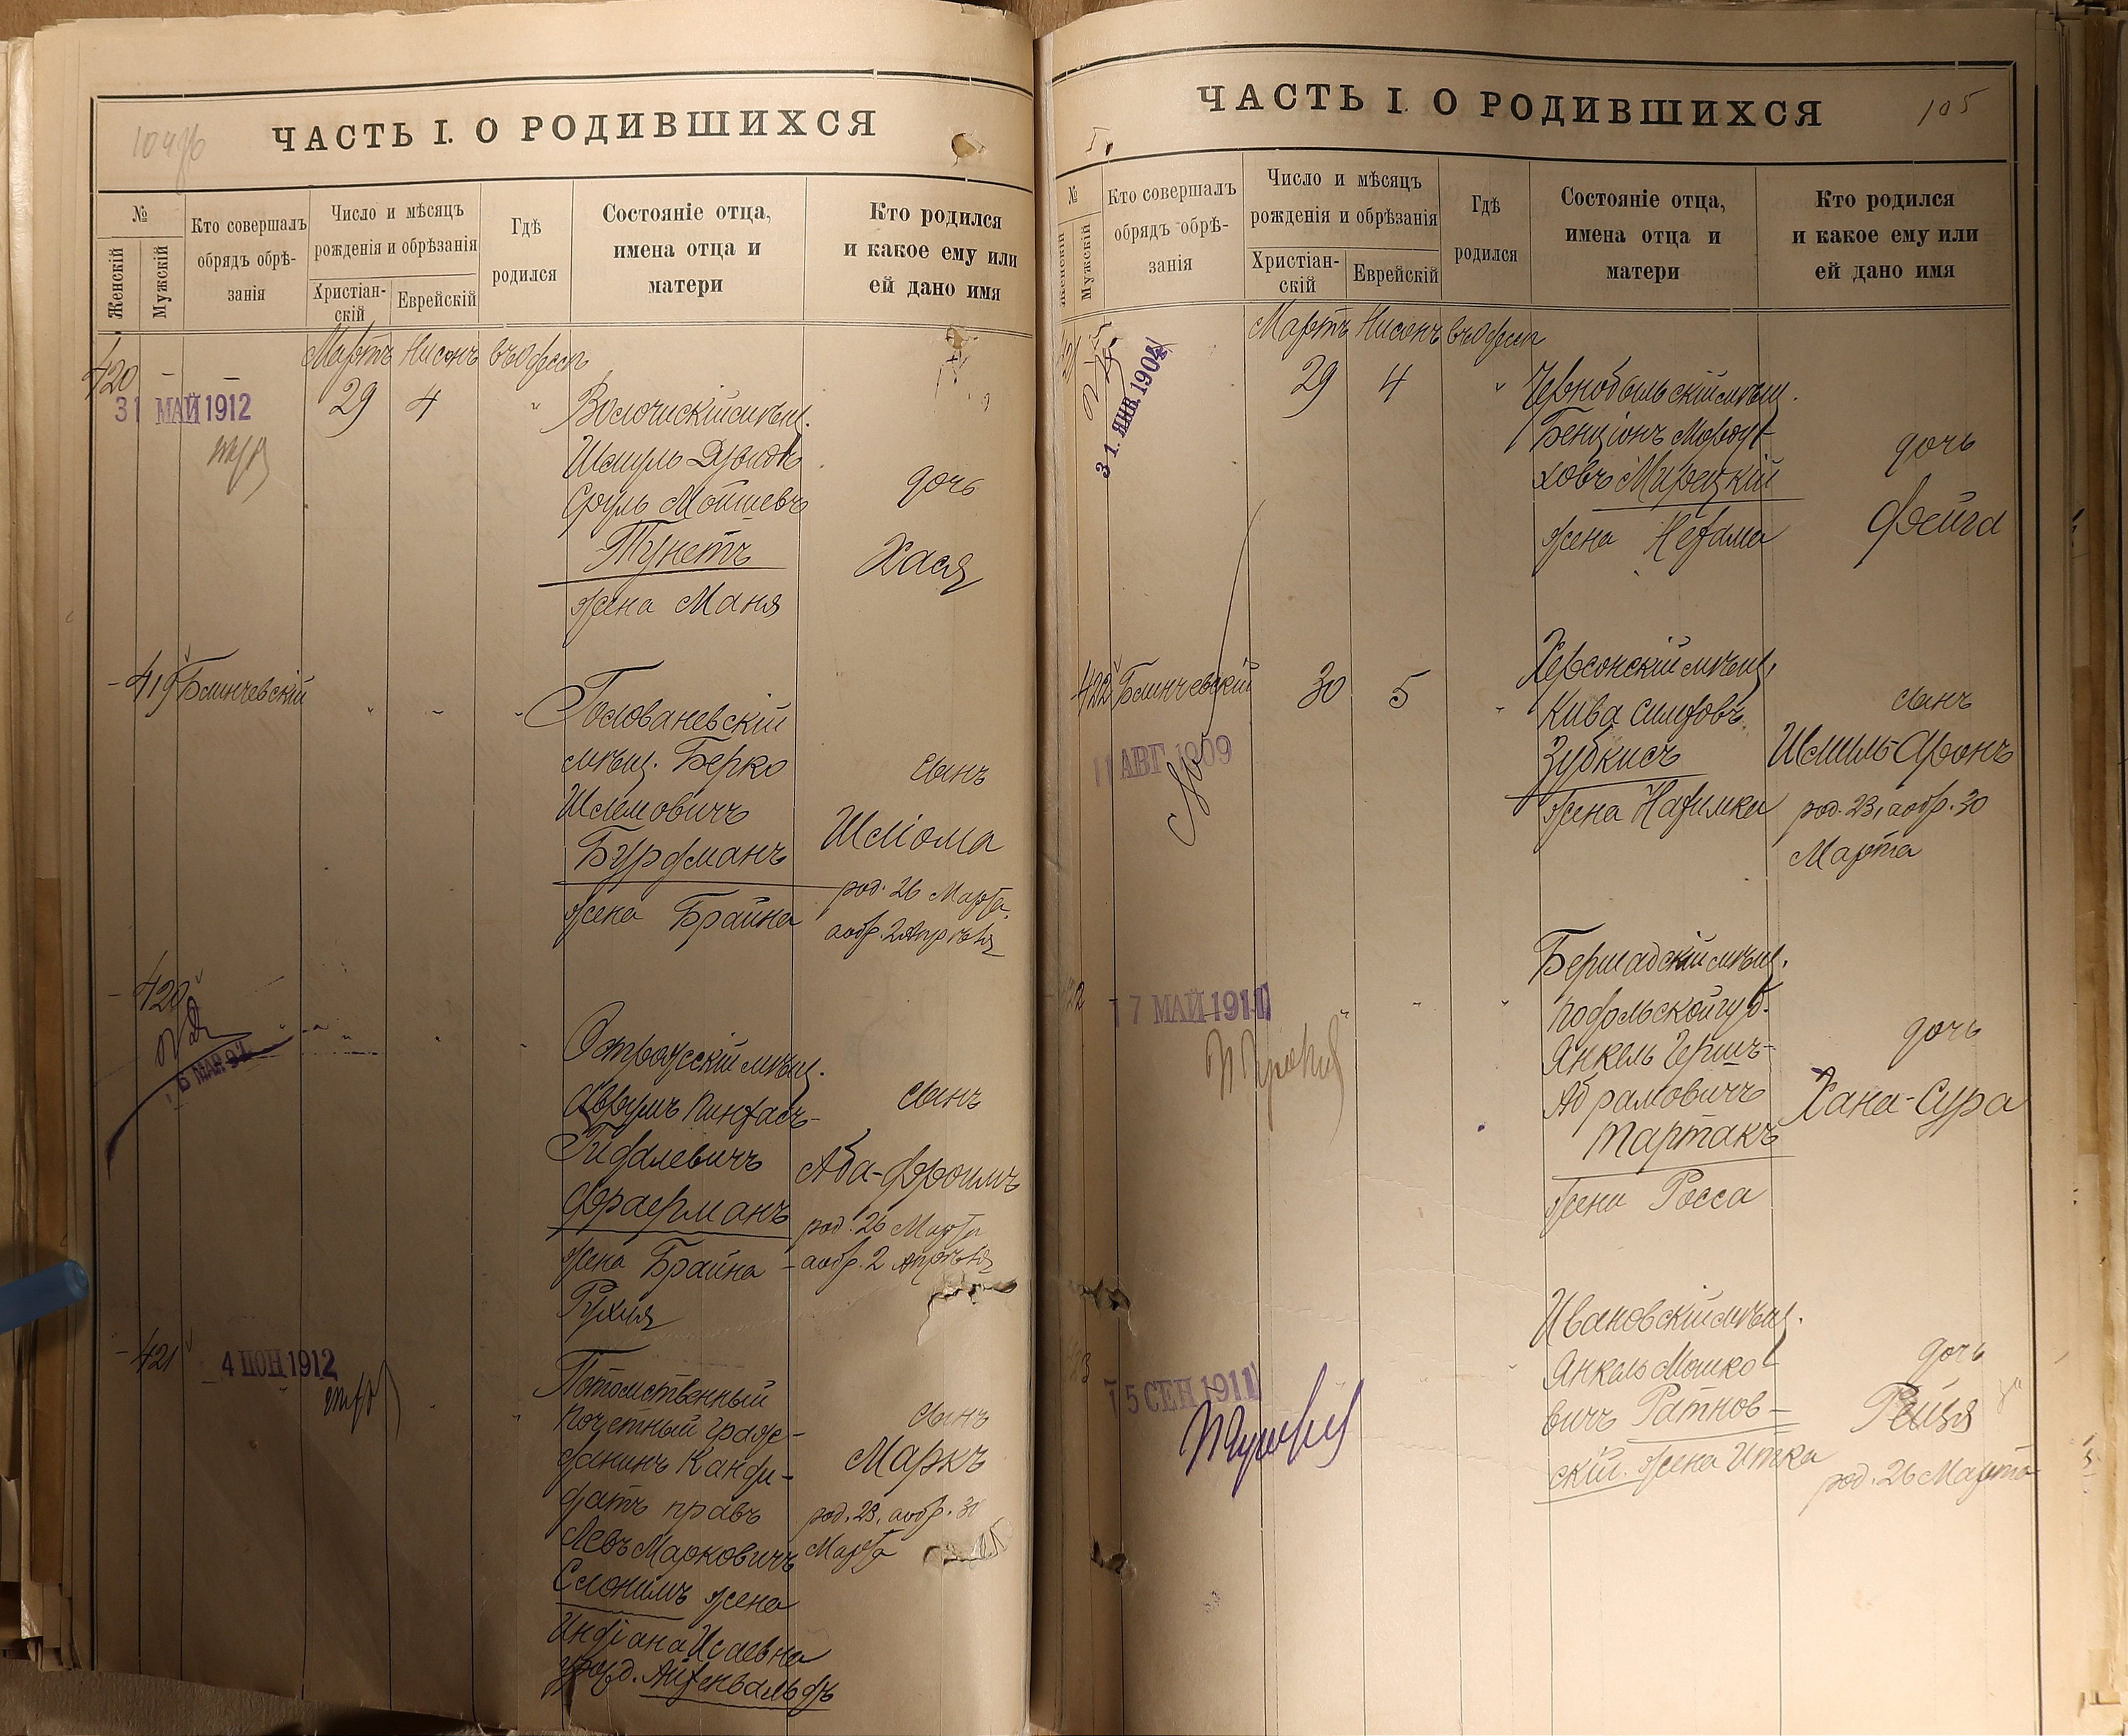 ЧАСТЬ I. О РОДИВШИХСЯ
№
Женскій
Мужскій
Кто совершалъ
обрядъ обрѣ-
занія
Число и мѣсяцъ
рожденія и обрѣзанія
Христіан-
скій
Еврейскій
Гдѣ
родился
Состояніе отца,
имена отца и
матери
Кто родился
и какое ему или
ей дано имя
Мартъ Нисонъ
420
29 4
31 МАЙ 1912
Волочискій мѣщ.
Шмуль
Сруль Мошшевъ
Тунетъ
жена Маня
дочь
Хася
419 Блинчевскій
Голованевскій
мѣщ. Берко
Шлемовичъ
Бурдманъ
жена Брайна
сынъ
Шліома
род. 26 Марта
а обр. 2 Апрѣля
420
Острожскій мѣщ.
Аврумъ Пинхасъ-
Гидалевичъ
Фраерманъ
жена Брайна -
Рухля
сынъ
Аба-Фроимъ
род. 26 Марта
а обр. 2 Апрѣля
421
4 ІЮН 1912
Потомственный
почетный граж-
данинъ Канди-
датъ правъ
Левъ Марковичъ
Слонимъ жена
Индіана Исаевна
урожд. Айхенвальдъ
сынъ
Маркъ
род. 23, а обр. 30
Марта
ЧАСТЬ I. О РОДИВШИХСЯ
105
№
Женскій
Мужскій
Кто совершалъ
обрядъ обрѣ-
занія
Число и мѣсяцъ
рожденія и обрѣзанія
Христіан-
скій
Еврейскій
Гдѣ
родился
Состояніе отца,
имена отца и
матери
Кто родился
и какое ему или
ей дано имя
Мартъ Нисонъ
421
29 4
31. ЯНВ. 1904
Чернобыльскій мѣщ.
Бенціонъ Мордух
ховъ
жена Нехама
дочь
Фейга
422 Блинчевскій
30 5
11 АВГ 1909
Херсонскій мѣщ.
Кива
Зубкисъ
жена Нахимка
сынъ
Шмиль-Аронъ
род. 23, а обр. 30
Марта
422
17 МАЙ 1911
Бершадскій мѣщ.
Подольской губ.
Янкель Гершъ-
Абрамовичъ
Тартакъ
жена Росса
дочь
Хана-Сура
423
15 СЕН 1911
Ивановскій мѣщ.
Янкель Мошко
вичъ Ратнов-
скій. жена Итка
дочь
Рейзя
род. 26 Марта